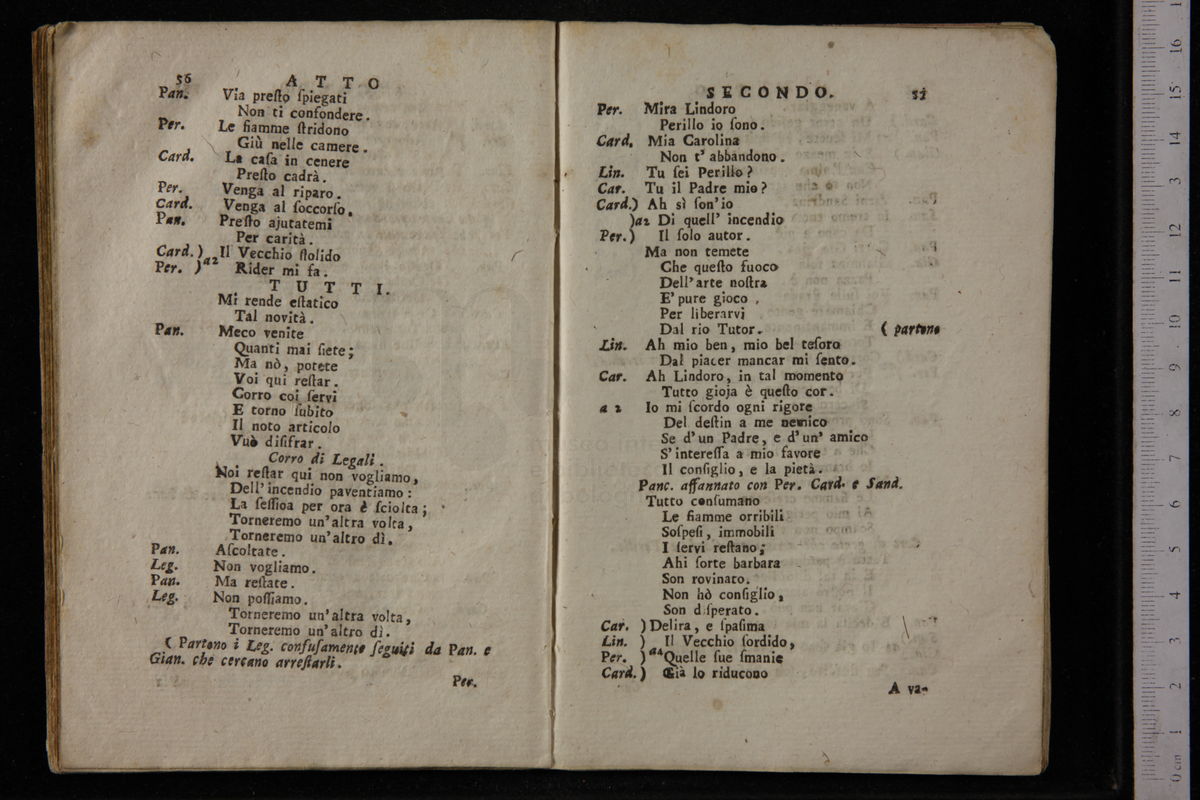 56 ATTO
Pan. Via preſto ſpiegati
Non ti confondere.
Per. Le fiamme ſtridono
Giù nelle camere.
Card. La caſa in cenere
Preſto cadrà.
Per. Venga al riparo.
Card. Venga al ſoccorſo.
Pan. Preſto ajutatemi
Per carità.
Card.) Il Vecchio ſtolido
Per. )a2 Rider mi fa.
TUTTI.
Mi rende eſtatico
Tal novità.
Pan. Meco venite
Quanti mai ſiete;
Ma nò, potete
Voi qui reſtar.
Corro coi ſervi
E torno ſubito
Il noto articolo
Vuò diſifrar.
Corro di Legali.
Noi reſtar qui non vogliamo,
Dell'incendio paventiamo:
La ſeſſioa per ora è ſciolta;
Torneremo un'altra volta,
Torneremo un'altro dì.
Pan. Aſcoltate.
Leg. Non vogliamo.
Pan. Ma reſtate.
Leg. Non poſſiamo.
Torneremo un'altra volta,
Torneremo un'altro dì.
( Partono i Leg. confuſamente ſeguiti da Pan. e
Gian. che cercano arreſtarli.
Per.
SECONDO. 57
Per. Mira Lindoro
Perillo io ſono.
Card. Mia Carolina
Non t' abbandono.
Lin. Tu ſei Perillo?
Car. Tu il Padre mio?
Card.) Ah sì ſon'io
)a2 Di quell' incendio
Per.) Il ſolo autor.
Ma non temete
Che queſto fuoco
Dell'arte noſtra
E' pure gioco,
Per liberarvi
Dal rio Tutor. ( partono
Lin. Ah mio ben, mio bel teſoro
Dal piacer mancar mi ſento.
Car. Ah Lindoro, in tal momento
Tutto gioja è queſto cor.
a 2 Io mi ſcordo ogni rigore
Del deſtin a me nemico
Se d'un Padre, e d'un' amico
S'intereſſa a mio favore
Il conſiglio, e la pietà.
Panc. affannato con Per. Card. e Sand.
Tutto conſumano
Le fiamme orribili
Soſpeſi, immobili
I ſervi reſtano;
Ahi ſorte barbara
Son rovinato.
Non hò conſiglio,
Son diſperato.
Car. ) Delira, e ſpaſima
Lin. ) Il Vecchio ſordido,
Per. )a4 Quelle ſue ſmanie
Card.) Già lo riducono
A va-